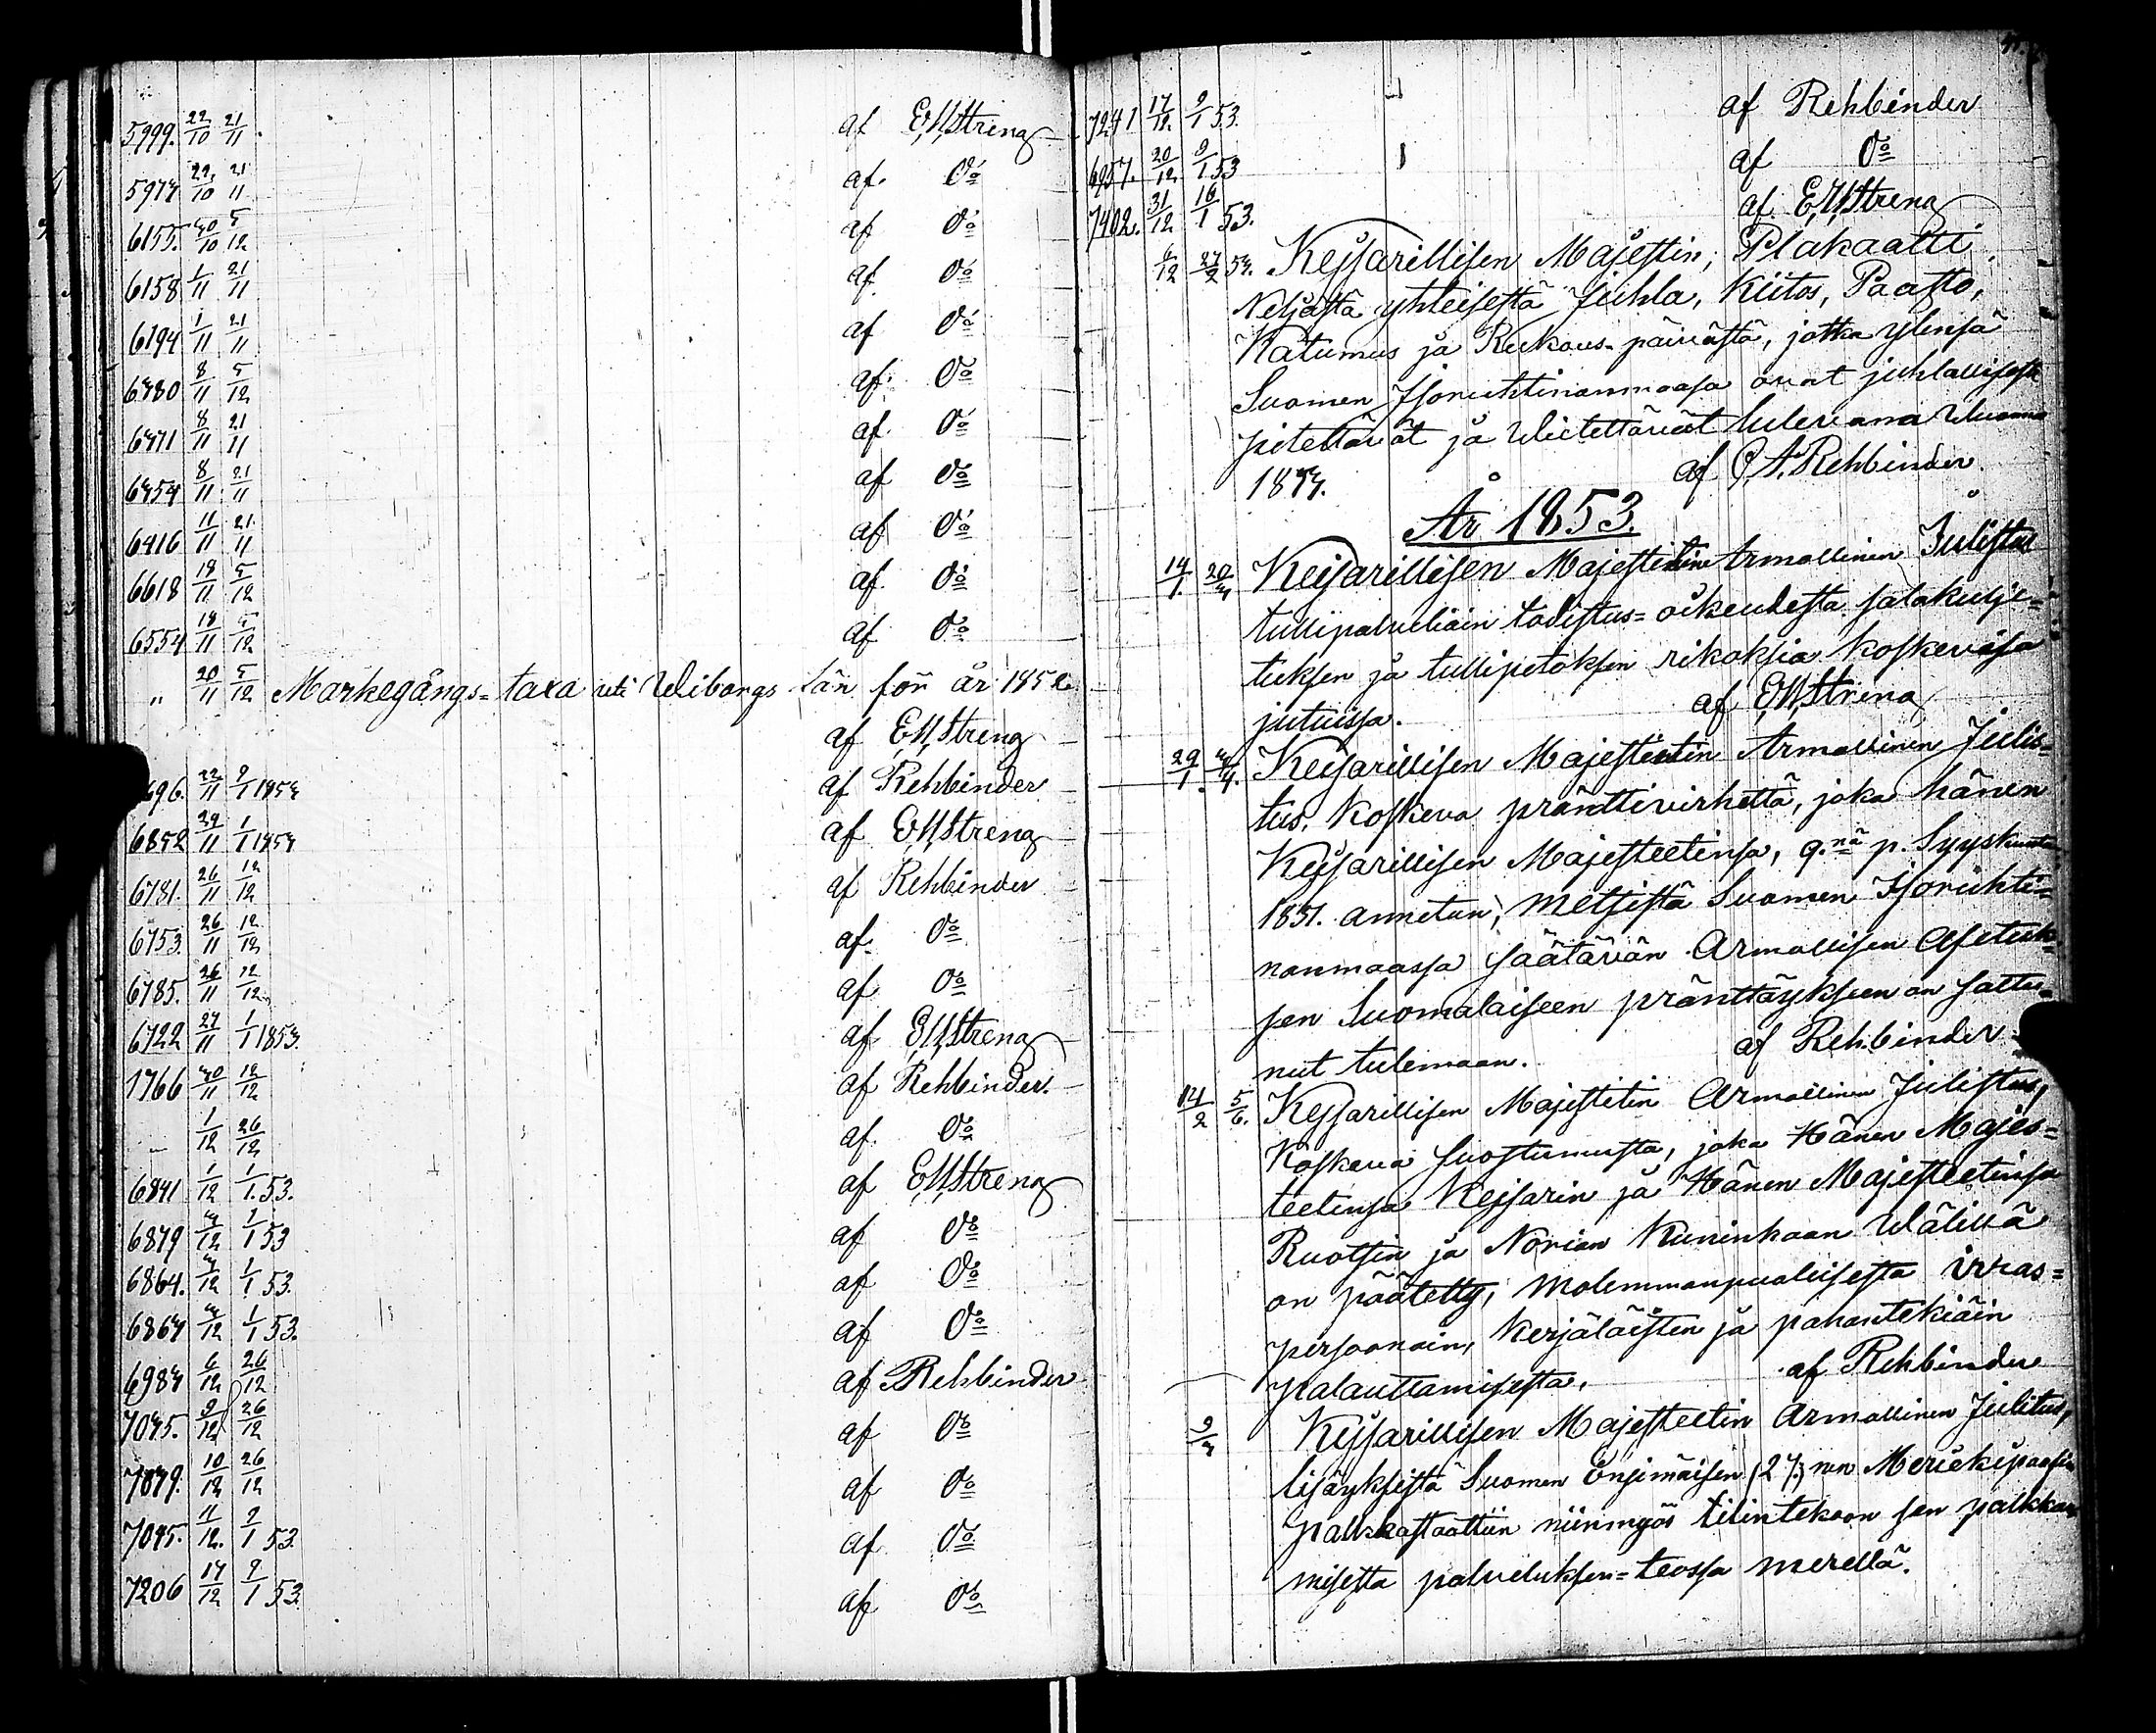 5999. 22/10 21/11 af E,W,Streng
5977 22/10 21/11 af Do
6155. 30/10 5/12 af Do
6158 1/11 21/11 af Do
6194 1/11 21/11 af Do
6380 8/11 5/12 af Do
6371 8/11 21/11 af Do
6354 8/11 21/11 af Do
6416 11/11 21/11 af Do
6618 18/11 5/12 af Do
6554 18/11 5/12 af Do
" 20/11 5/12 Markegångs=taxa uti Wiborgs Län för år 1852
af E,W,Streng
696. 22/11 9/1 1853 af Rehbinder
6852 29/11 1/1 1853 af E,W,Streng
6781. 26/11 12/12 af Rehbinder
6753. 26/11 12/12 af Do
6785. 26/11 12/12 af Do
6722 27/11 1/1 1853. af E,W,Streng
1766 30/11 12/12 af Rehbinder.
1/12 26/12 af Do
6841 1/12 1/1.53. af E,W,Streng
6879 3/12 1/1 53 af Do
6864. 3/12 1/1 53. af Do
6867 3/12 1/1 53. af Do
6983 6/12 26/12 af Rehbinder
7035. 9/12 26/12 af Do
7079. 10/12 26/12 af Do
7095. 11/12. 9/1 53. af Do
7206 17/12 9/1 53. af Do
7241 17/12. 9/1 53. af Rehbinder
6957. 20/12 9/1 53 af Do
7402. 31/12 16/1 53. af E,W,Streng
6/12 27/2 53. Kejsarillisen Majestin, Plakaatti
Neljästä yhteisestä Juhla, Kiitos, Paasto,
Katumus ja Rukous-päivästä, jotka ylensä
Suomen Isoruhtinanmaasa ovat juhlallisesti
pitettävät ja Wietettävät tulevana Wuonna
1853. af C,A.Rehbinder.
År 1853.
14/1. 20/3 Keisarillisen Majestetin Armollinen Julistus
tullipalveliain todistus=oikeudesta salakulje=
tuksen ja tullipetoksen rikoksia koskevaisa
jutuissa. af E,W,Streng
29/1. Keisarillisen Majestetin Armollinen Julis=
tus, Koskeva pränttivirhettä, joka hänen
Kejsarillisen Majesteetinsa, 9.nä p. Syyskuuta
1851. annetun, metsistä Suomen Isoruhti=
nanmaassa säätävän Armollisen Asetuk=
sen Suomalaiseen pränttäykseen on sattu=
nut tulemaan. af Rehbinder
14/2 5/6. Kejsarillisen Majestetin Armollinen Julistus,
Koskeva suostumusta, joka Hänen Majes=
teetinsa Kejsarin ja Hänen Majesteetinsa
Ruotsin ja Norian Kuninkaan Wälillä
on päätetty, Molemmanpuolisesta irras=
persoonain, Kerjäläisten ja pahantekiäin
palauttamisesta. af Rehbinder
9/3 Kejsarillisen Majesteetin Armollinen Julitus,
lisäyksistä Suomen Ensimäisen (27.) nen Meriekipaasin
palkkastaattiin niinmyös tilintekoon sen palkka
misesta palveluksen=teossa merellä.